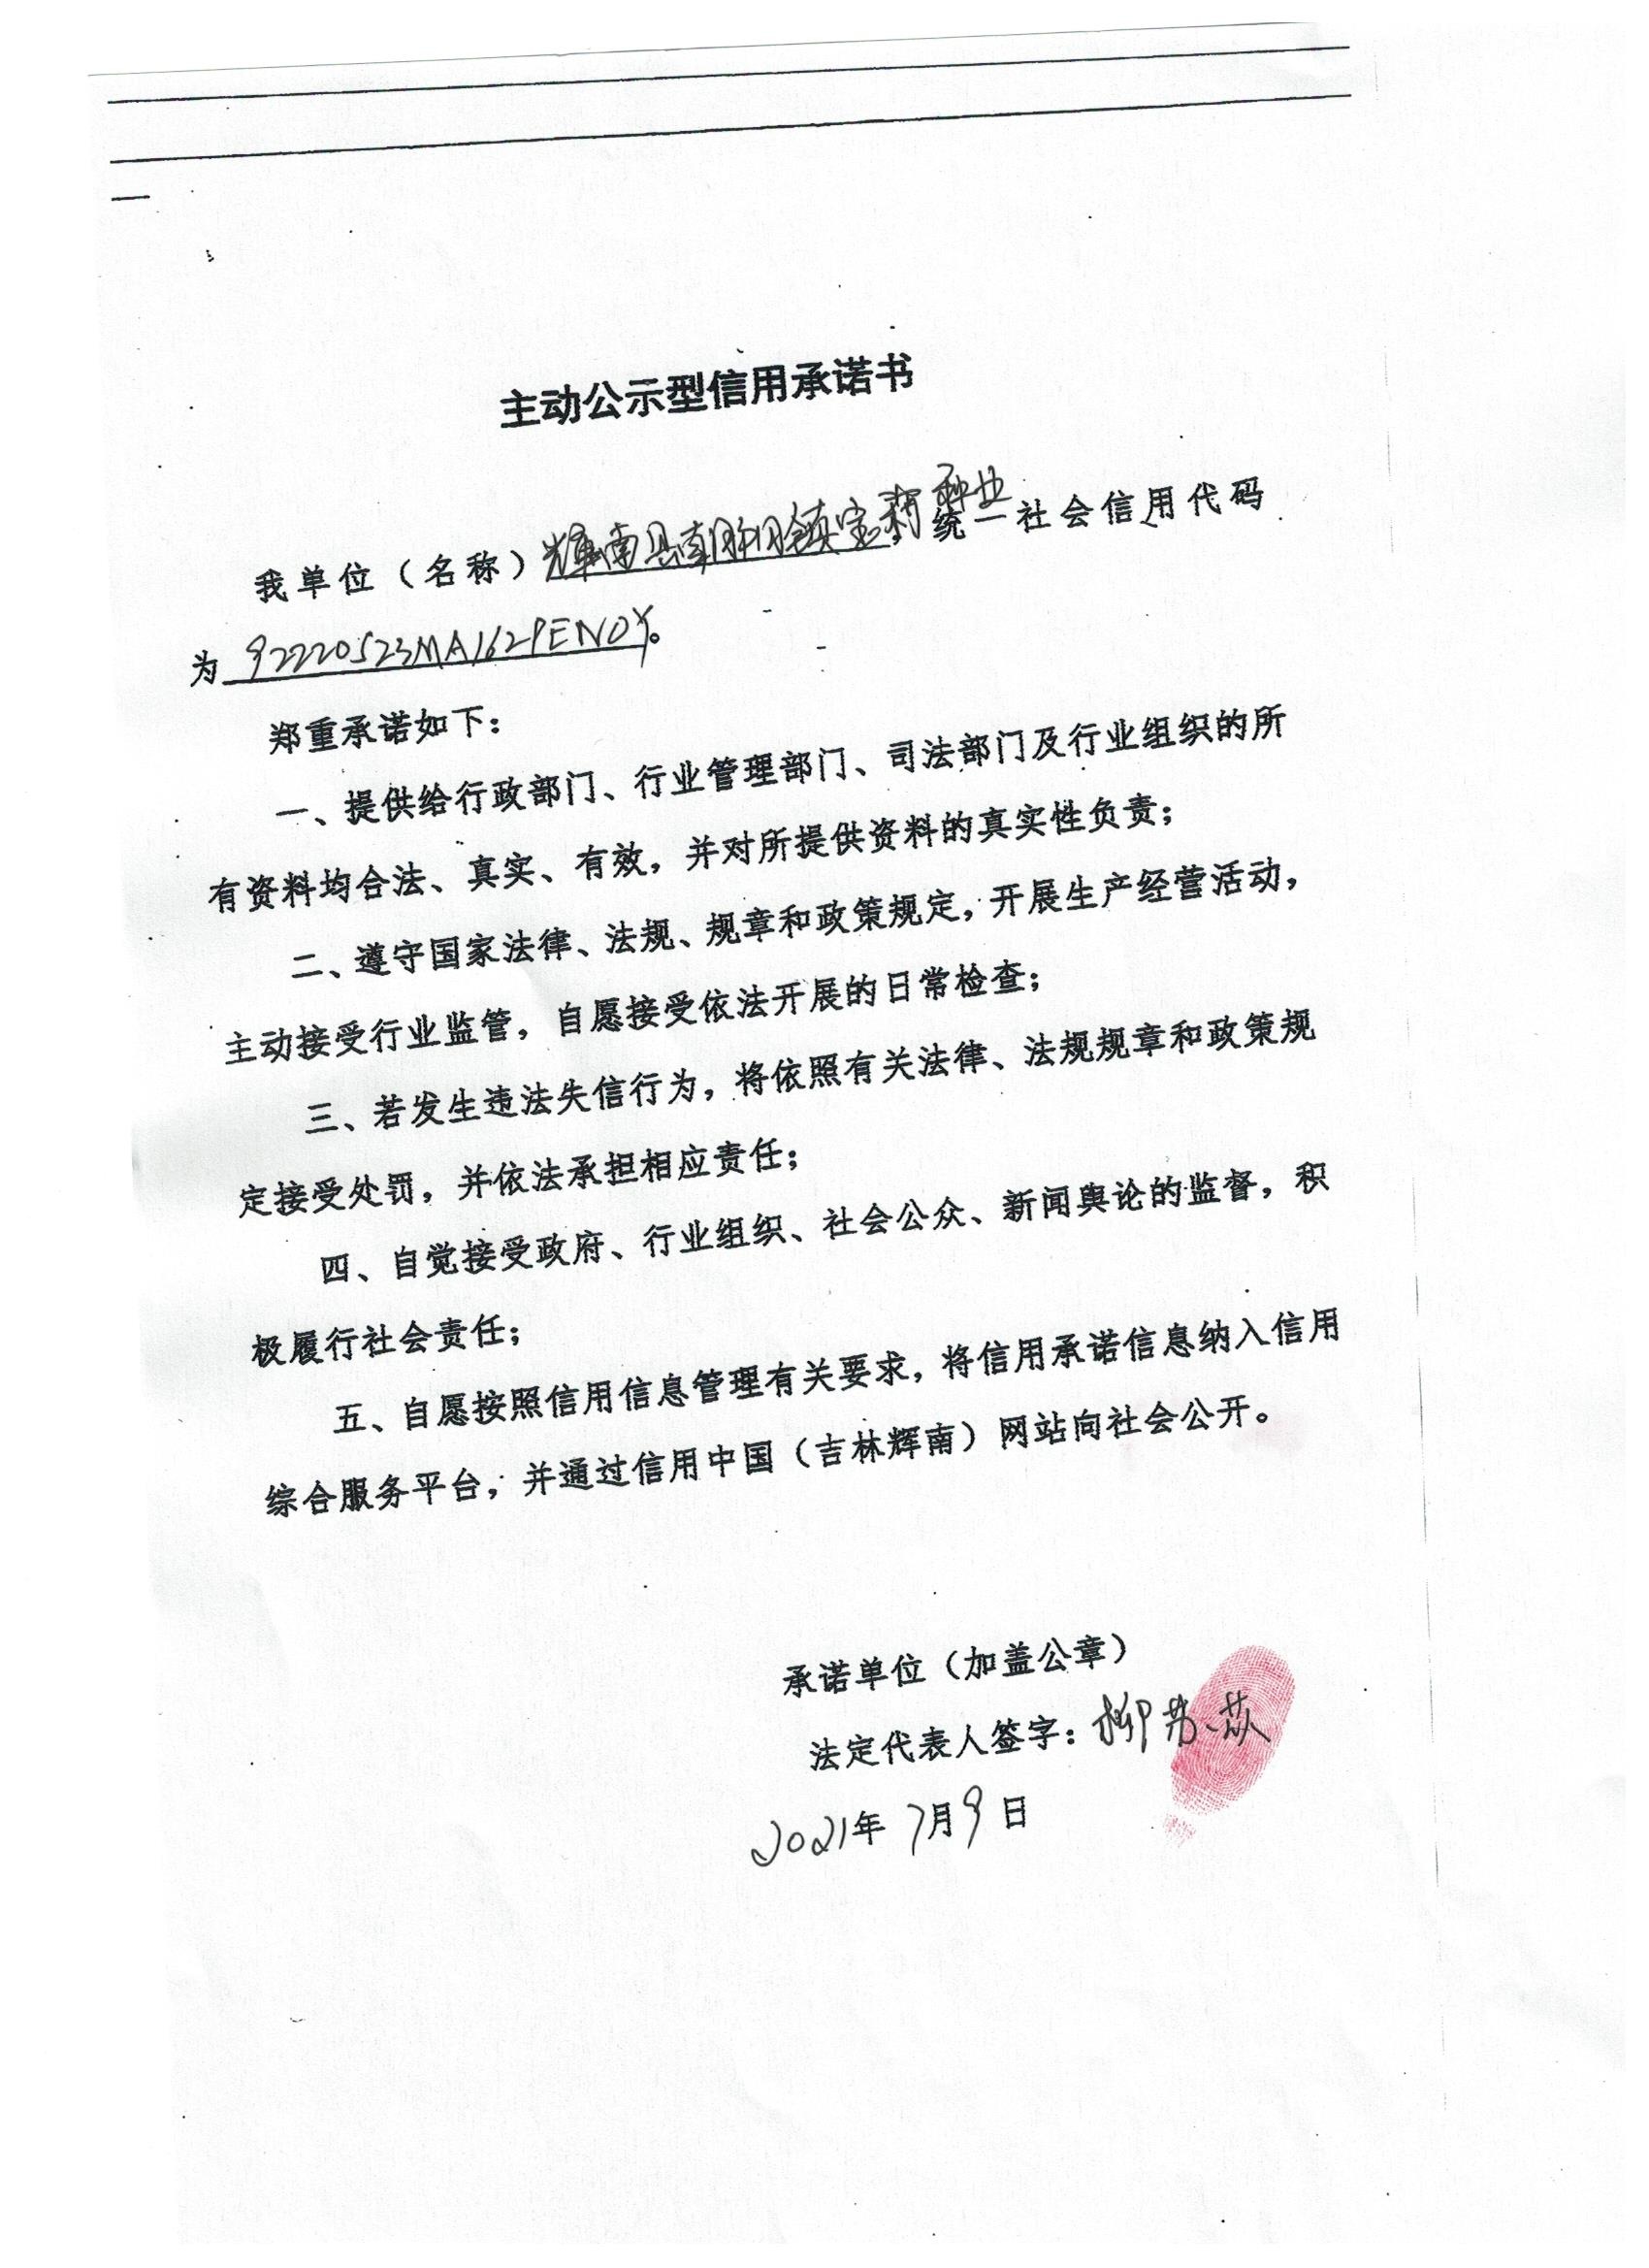 主动公示型信用承诺书
我单位（名称）辉南县朝阳镇宝莉种业，统一社会信用代码
为 92220523MA1629EN0Y。
郑重承诺如下：
一、提供给行政部门、行业管理部门、司法部门及行业组织的所
有资料均合法、真实、有效，并对所提供资料的真实性负责；
二、遵守国家法律、法规、规章和政策规定，开展生产经营活动，
主动接受行业监管，自愿接受依法开展的日常检查；
三、若发生违法失信行为，将依照有关法律、法规规章和政策规
定接受处罚，并依法承担相应责任；
四、自觉接受政府、行业组织、社会公众、新闻舆论的监督，积
极履行社会责任；
五、自愿按照信用信息管理有关要求，将信用承诺信息纳入信用
综合服务平台，并通过信用中国（吉林辉南）网站向社会公开。
承诺单位（加盖公章）
法定代表人签字：柳
2021年 7月9日